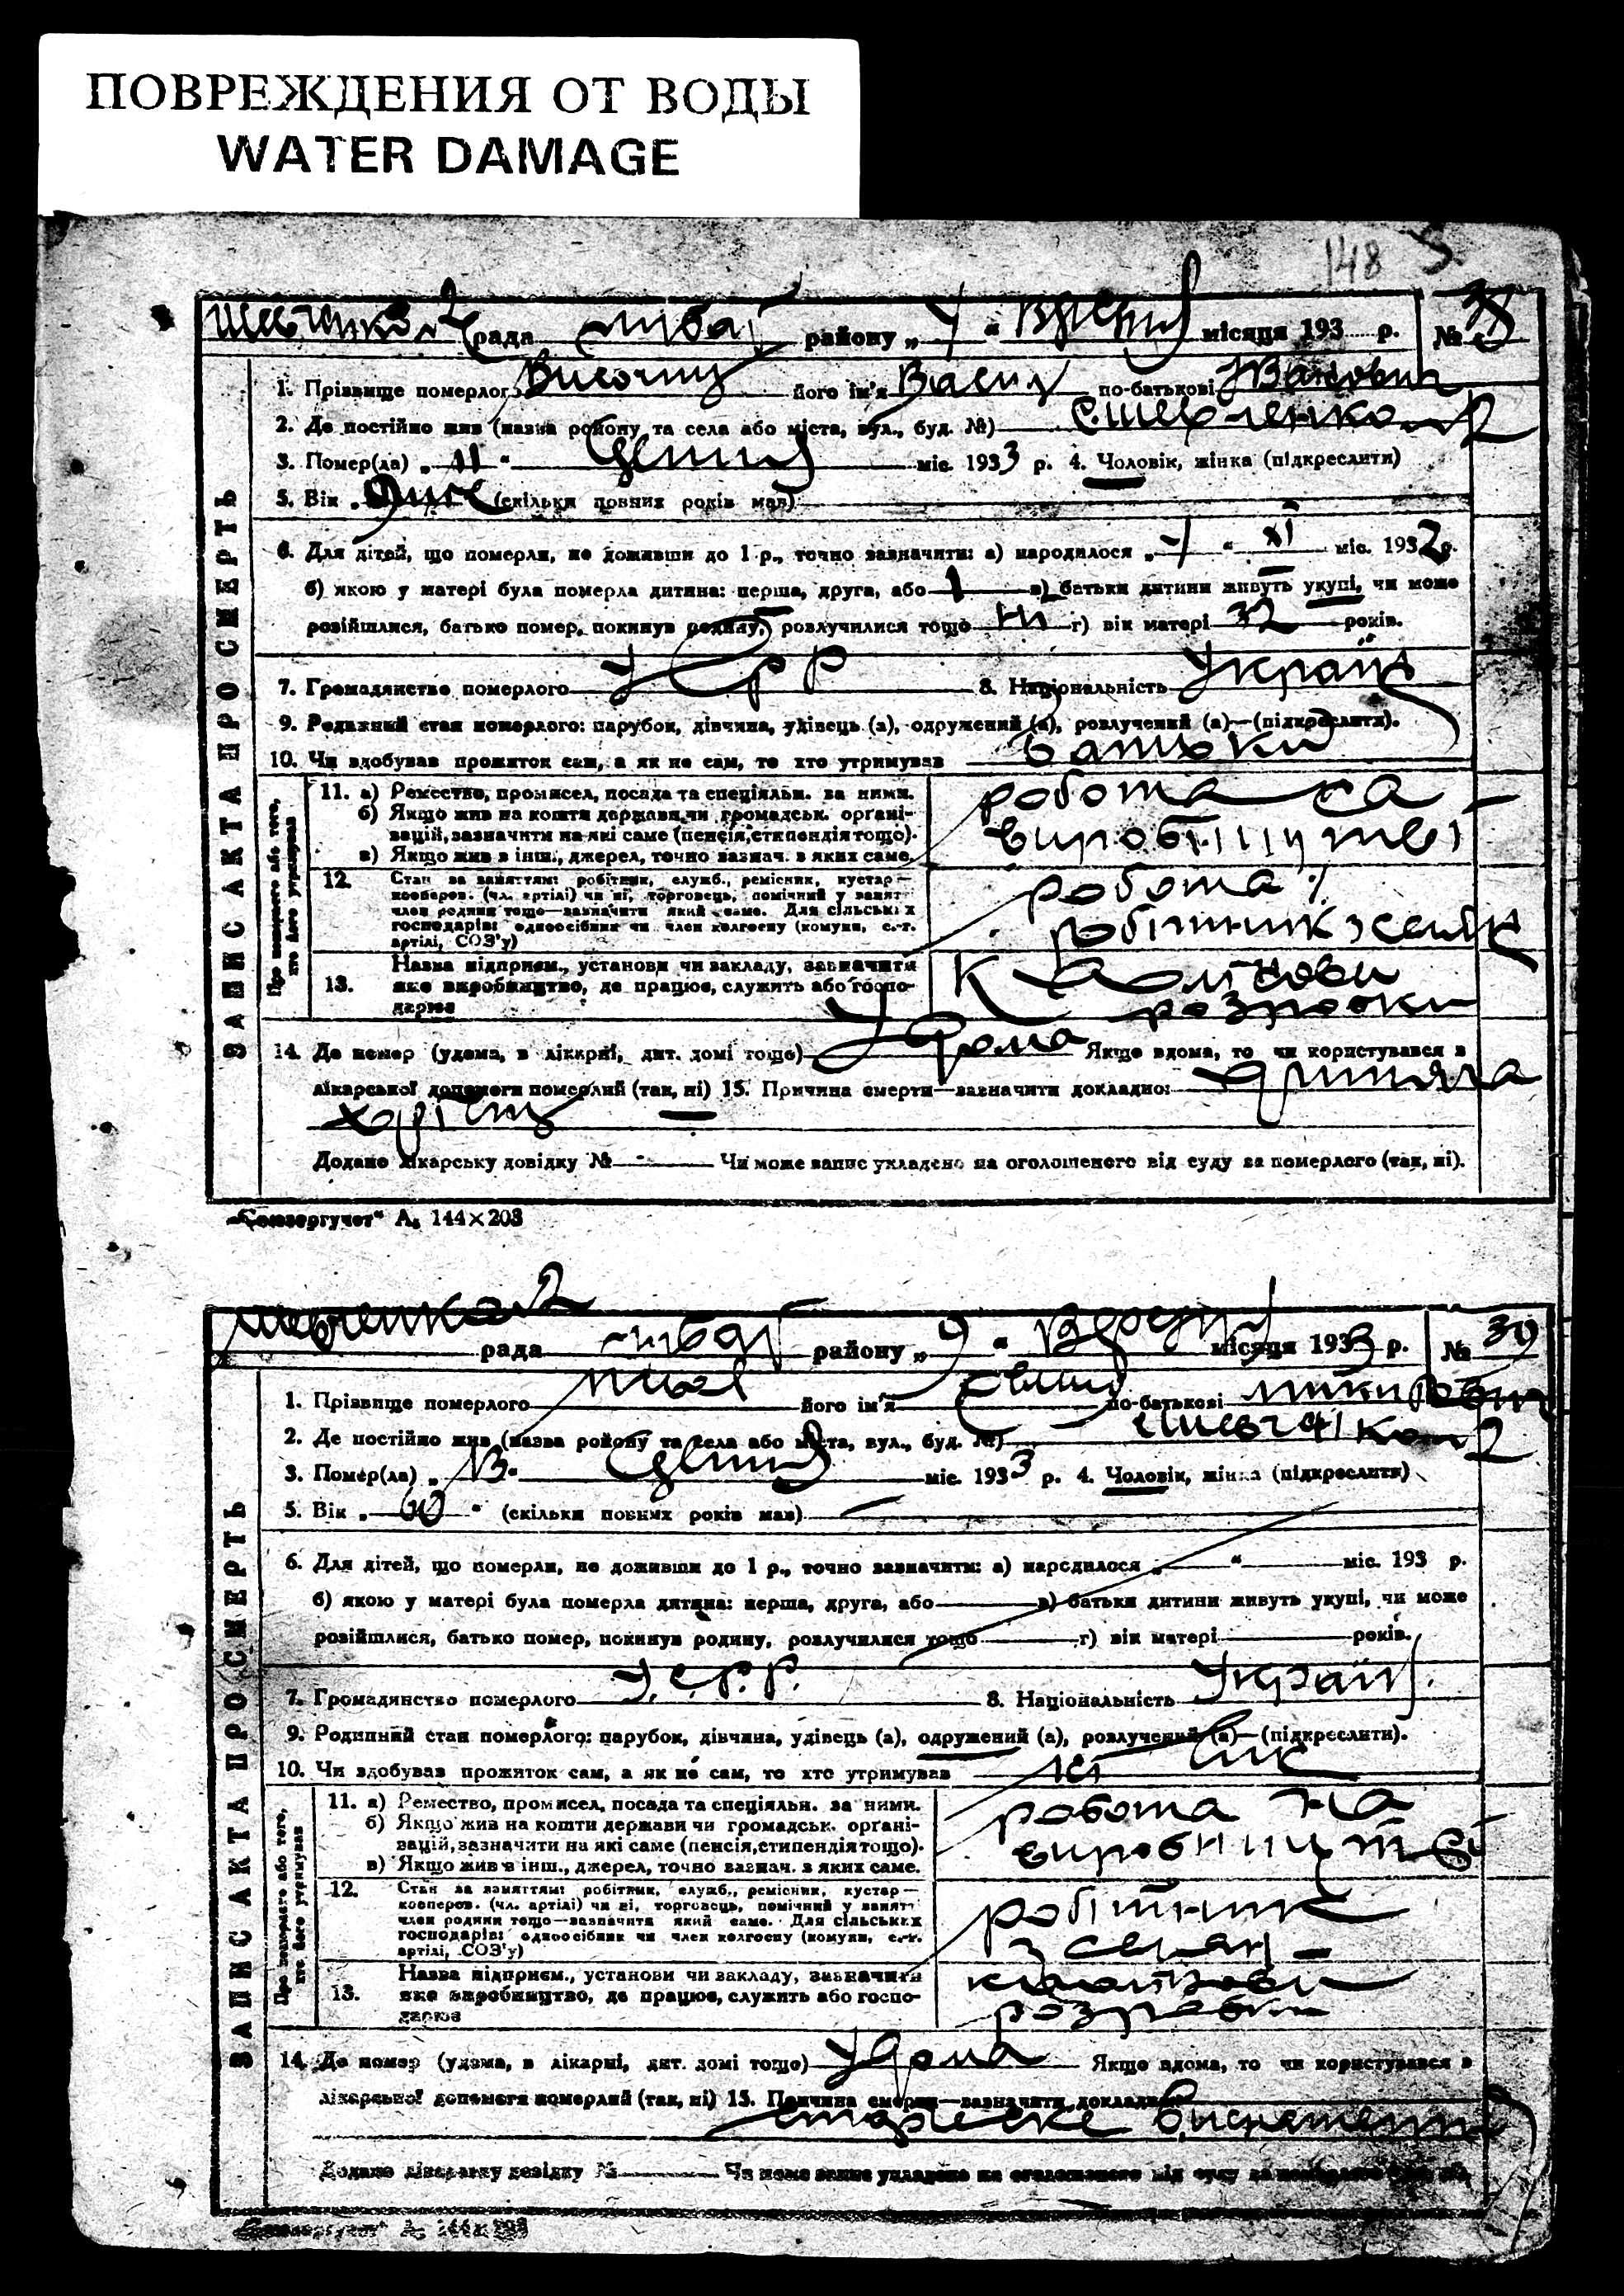 ПОВРЕЖДЕНИЯ ОТ ВОДЫ
WATER DAMAGE
148
рада району „ “ місяця 193 р. № 38
ЗАПИС АКТА ПРО СМЕРТЬ
1. Прізвище померлого його ім'я Васил по-батькові Іванович
2. Де постійно жив (назва району та села або міста, вул., буд. №) с. Шевченко 2
3. Помер(ла) „ 11 “ міс. 1933 р. 4. Чоловік, жінка (підкреслити)
5. Вік „ (скільки повних років мав)
6. Для дітей, що померли, не доживши до 1 р., точно зазначити: а) народилося „ “ XI міс. 1932 р.
б) якою у матері була померла дитина: перша, друга, або 1 в) батьки дитини живуть укупі, чи може
розійшлися, батько помер, покинув родину, розлучилися тощо ні г) вік матері 32 років.
7. Громадянство померлого УСРР 8. Національність Україн
9. Родинний стан померлого: парубок, дівчина, удівець (а), одружений (а), розлучений (а)—(підкреслити).
10. Чи здобував прожиток сам, а як не сам, то хто утримував батьки
Про померлого або того, хто його утримував
11. а) Ремество, промисел, посада та спеціяльн. за ними.
б) Якщо жив на кошти держави чи громадськ. органі-
зацій, зазначити на які саме (пенсія, стипендія тощо).
в) Якщо жив в інш., джерел, точно зазнач. з яких саме.
робота на
виробництві
12. Стан за заняттям: робітник, служб., ремісник, кустар—
кооперов. (чл. артілі) чи ні, торговець, помічний у занят.
член родини тощо—зазначити який саме. Для сільських
господарів: одноосібник чи член колгоспу (комуни, с.-г.
артілі, СОЗ'у)
робота
робітник з селян
13. Назва підприєм., установи чи закладу, зазначити
яке виробництво, де працює, служить або госпо-
дарює
розробки
14. Де помер (удома, в лікарні, дит. домі тощо) Удома Якщо вдома, то чи користувався з
лікарської допомоги померлий (так, ні) 15. Причина смерти—зазначити докладно:
Додано лікарську довідку № Чи може запис укладено на оголошеного від суду за померлого (так, ні).
„Союзоргучет“ А₅ 144×203
Шевченко 2 рада району „ 9 “ місяця 1933 р. № 39
ЗАПИС АКТА ПРО СМЕРТЬ
1. Прізвище померлого його ім'я по-батькові
2. Де постійно жив (назва району та села або міста, вул., буд. №) с. Шевченко 2
3. Помер(ла) „ 13 “ міс. 1933 р. 4. Чоловік, жінка (підкреслити)
5. Вік „ 60 “ (скільки повних років мав)
6. Для дітей, що померли, не доживши до 1 р., точно зазначити: а) народилося „ “ міс. 193 р.
б) якою у матері була померла дитина: перша, друга, або в) батьки дитини живуть укупі, чи може
розійшлися, батько помер, покинув родину, розлучилися тощо г) вік матері років.
7. Громадянство померлого У.С.Р.Р. 8. Національність Україн.
9. Родинний стан померлого: парубок, дівчина, удівець (а), одружений (а), розлучений (а)—(підкреслити).
10. Чи здобував прожиток сам, а як не сам, то хто утримував
Про померлого або того, хто його утримував
11. а) Ремество, промисел, посада та спеціяльн. за ними.
б) Якщо жив на кошти держави чи громадськ. органі-
зацій, зазначити на які саме (пенсія, стипендія тощо).
в) Якщо жив в інш., джерел, точно зазнач. з яких саме.
робота на
виробництві
12. Стан за заняттям: робітник, служб., ремісник, кустар—
кооперов. (чл. артілі) чи ні, торговець, помічний у занят.
член родини тощо—зазначити який саме. Для сільських
господарів: одноосібник чи член колгоспу (комуни, с.-г.
артілі, СОЗ'у)
робітник
з селян
13. Назва підприєм., установи чи закладу, зазначити
яке виробництво, де працює, служить або госпо-
дарює
розробки
14. Де помер (удома, в лікарні, дит. домі тощо) Удома Якщо вдома, то чи користувався з
лікарської допомоги померлий (так, ні) 15. Причина смерти—зазначити докладно:
старече
Додано лікарську довідку № Чи може запис укладено на оголошеного від суду за померлого
„Союзоргучет“ А₅ 144×203